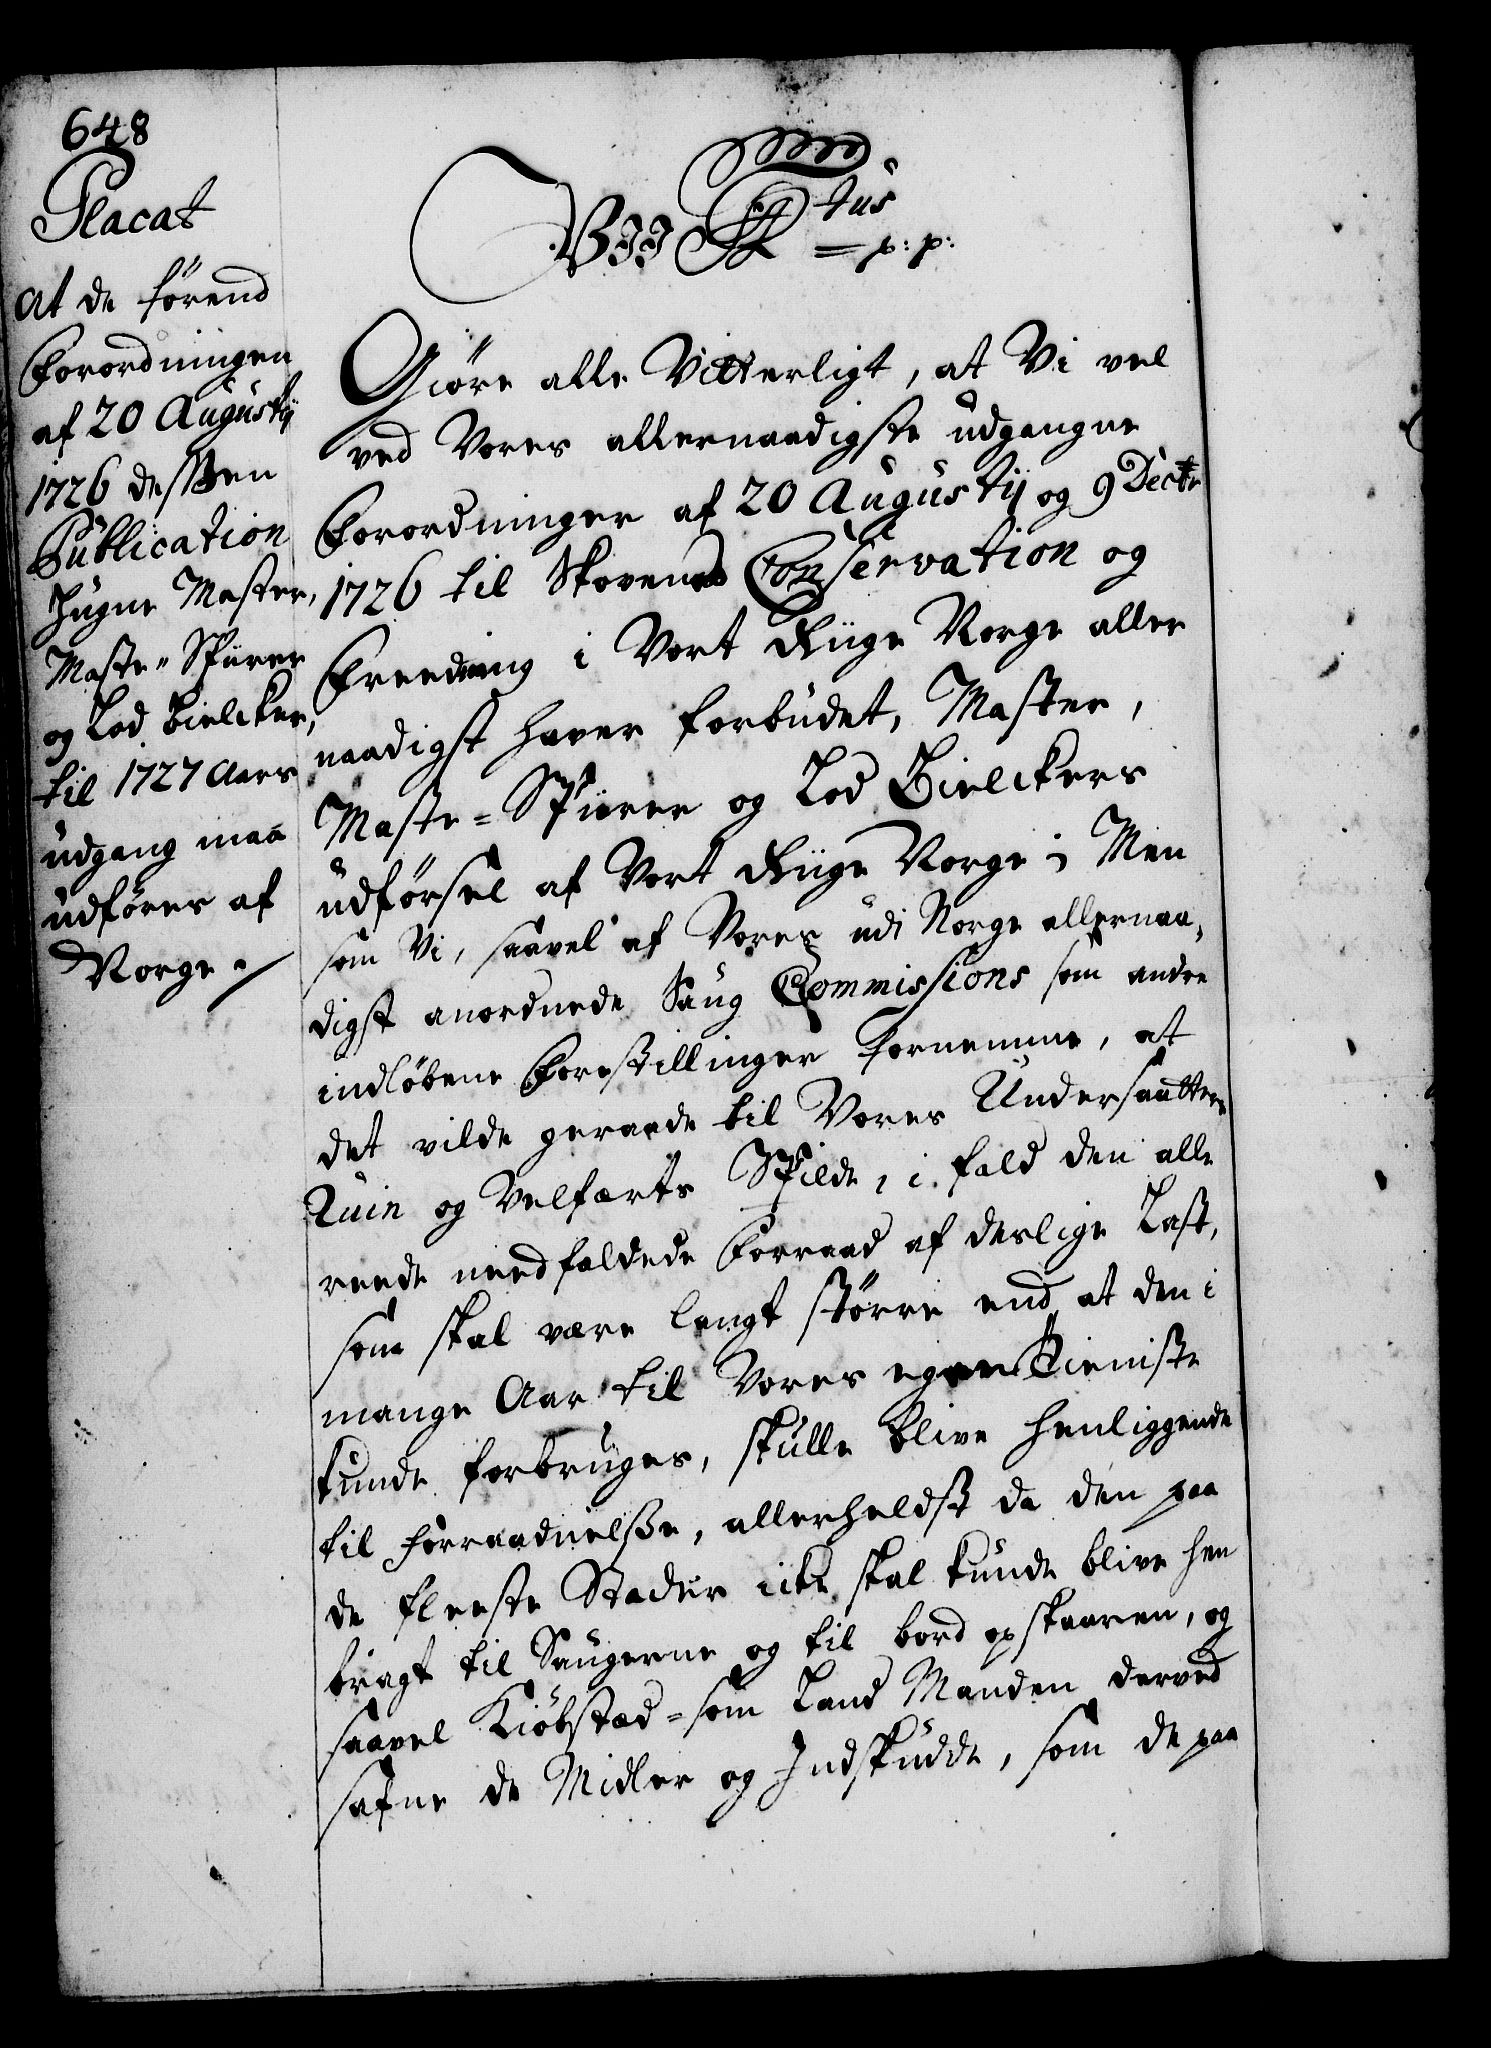 648
Placat
at de förend
Forordningen
af 20 Augustij
1726 desßen
Publication
hugne Master,
Maste-Spürer
og Lod Bielcker,
til 1727 Aars
udgang maa
udföres af
Norge.
VII Ftus
= p: p:
Giöre alle Vitterligt, at Vi vel
ved Vores allernaadigste udgangne
Forordninger af 20 Augustij og 9 Dectr
1726 til Skovenes Conservation og
Freedning i Vort Riige Norge aller
naadigst haver forbudet, Master,
Maste=Spürer og Lod Bielckers
udförsel af Vort Riige Norge; Men
som Vi, saavel af Vores udi Norge allernaa,
digst anordnede Saug Commissions som andre
indlöbene Forestillinger fornemme, at
det vilde geraade til Vores Undersaatters
Ruin og Velfærts Spilde, i fald den alle
reede needfaldede Forraad af deslige Last,
som skal være langt större end at den i
mange Aar til Vores egen Tieniste
kunde forbruges, skulle blive henliggende
til forraadnelsße, allerheldst da den paa
de fleeste Stader icke skal kunde blive hen
bragt til Saugerne og til bord opskaaren, og
saavel Kiöbstæd=som Land Manden derved
safne de Midler og Indskudde, som de paa